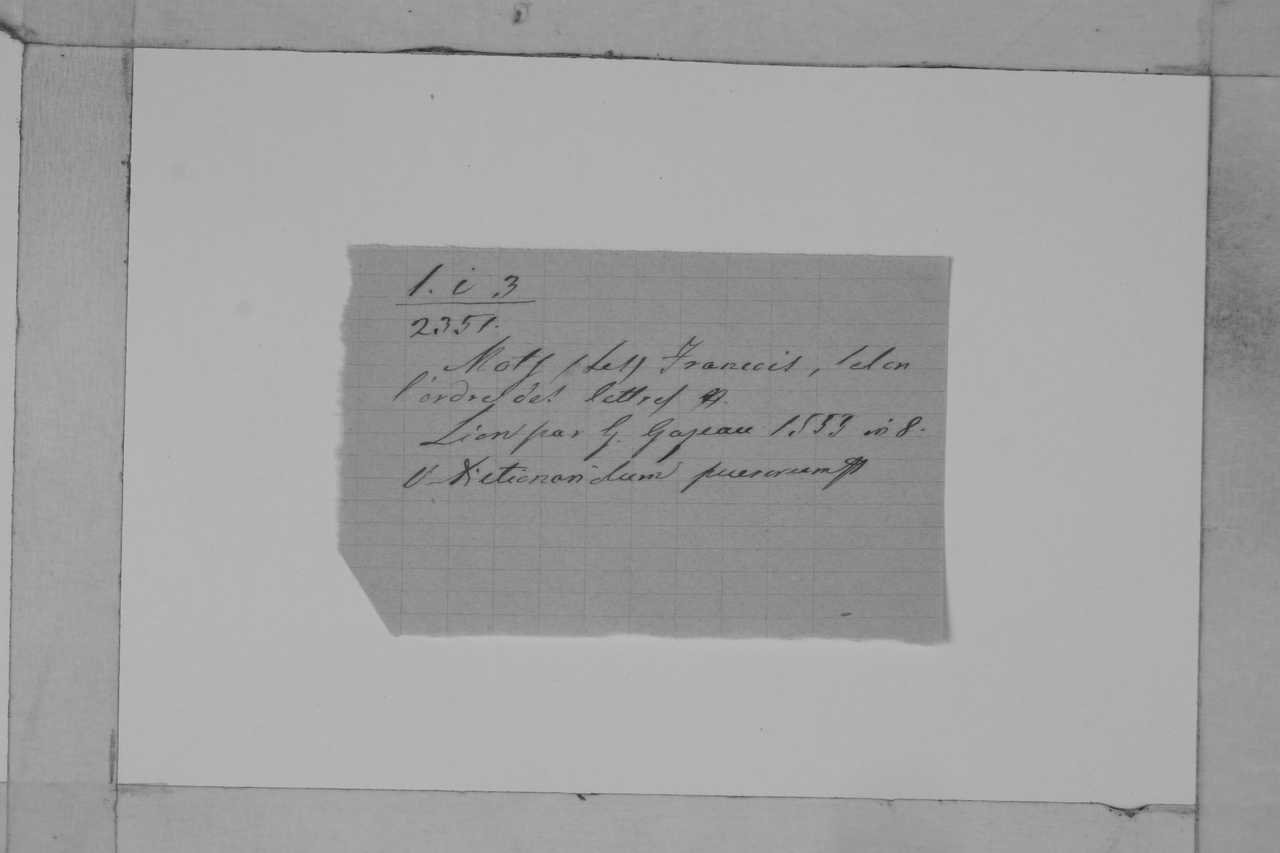 1. i 3
2351.
Mots (les) Francois, selon
l'ordre des lettres
Lion par G. Gazeau 1553 in 8.
V. Dictionariolum puerorum